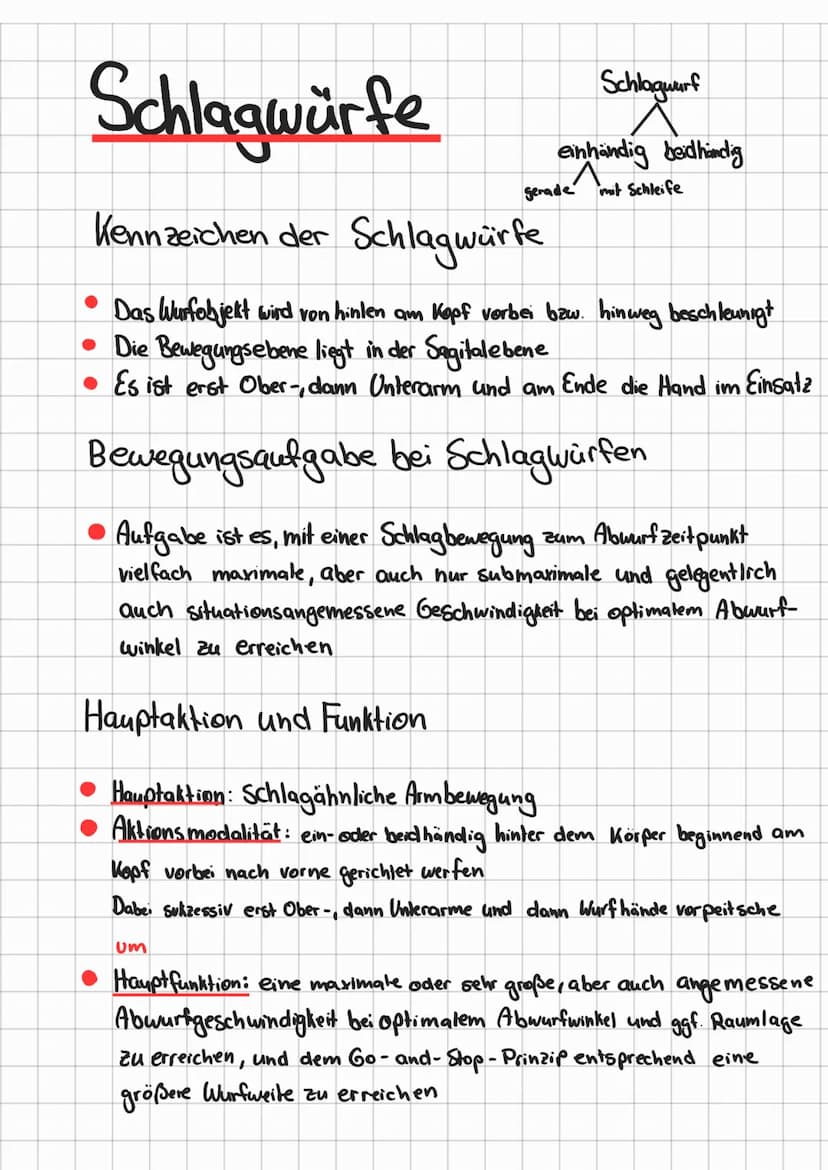 Schlagwürfe
Schlagwurf
einhändig beidhändig
gerade mit Schleife
Kennzeichen der Schlagwürfe
Das Wurfobjekt wird von hinlen am Kopf vorbei bzw. hinweg beschleunigt
Die Bewegungsebene liegt in der Sagitalebene
Es ist erst Ober-, dann Unterarm und am Ende die Hand im Einsatz
Bewegungsaufgabe bei Schlagwürfen
Aufgabe ist es, mit einer Schlagbewegung zum Abwurfzeitpunkt
vielfach maximale, aber auch nur submaximale und gelegentlich
auch situationsangemessene Geschwindigkeit bei optimalem Abwurf-
winkel zu erreichen
Hauptaktion und Funktion
Hauptaktion: Schlagähnliche Armbewegung
Aktionsmodalität: ein- oder beidhändig hinter dem Körper beginnend am
Kopf vorbei nach vorne gerichtet werfen
Dabei sukzessiv erst Ober-, dann Unterarme und dann Wurfhände vorpeitsche
um
Hauptfunktion: eine maximale oder sehr große, aber auch angemessene
Abwurfgeschwindigkeit bei optimalem Abwurfwinkel und ggf. Raumlage
zu erreichen, und dem Go-and-Stop-Prinzip entsprechend eine
größere Wurfweite zu erreichen